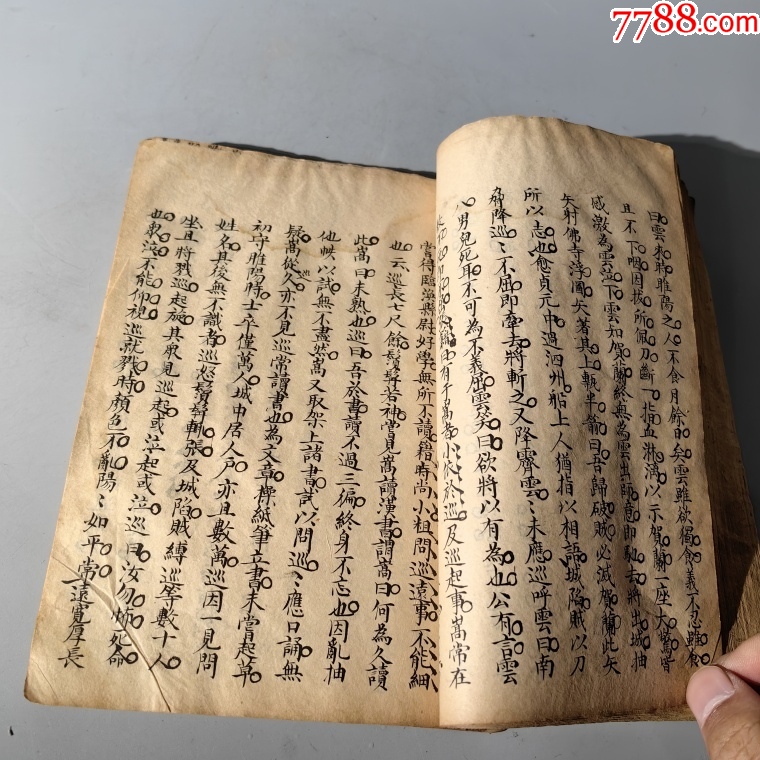 7788.com
曰雲來時睢陽之人不食月餘日矣雲雖欲獨食義不忍雖食
且不下咽因拔所佩刀斷一指血淋漓以示賀蘭一座大驚皆
感激為雲泣下雲知賀蘭終無為雲出師意即馳去將出城抽
矢射佛寺浮圖矢著其上甎半箭曰吾歸破賊必滅賀蘭此矢
所以志也愈貞元中過泗州船上人猶指以相語城陷賊以刀
脅降巡〻不屈即牽去將斬之又降霽雲〻未應巡呼雲曰南
八男兒死耳不可為不義屈雲笑曰欲將以有為也公有言雲
有于嵩者小依於巡及巡起事嵩常在
嘗得臨渙縣尉好學無所不讀籍時尚小粗問巡遠事不能細
也云巡長七尺餘鬚髯若神嘗見嵩讀漢書謂嵩曰何為久讀
此嵩曰未熟也巡曰吾於書讀不過三徧終身不忘也因亂抽
他帙以試無不盡然嵩又取架上諸書試以問巡〻應口誦無
疑嵩從久亦不見巡常讀書也為文章操紙筆立書未嘗起草
初守睢陽時士卒僅萬人城中居人戶亦且數萬巡因一見問
姓名其後無不識者巡怒鬚髯輒張及城陷賊縛巡等數十人
坐且將戮巡起旋其眾見巡起或泣起或泣巡曰汝勿怖死命
也眾泣不能仰視巡就戮時顏色不亂陽〻如平常遠寬厚長